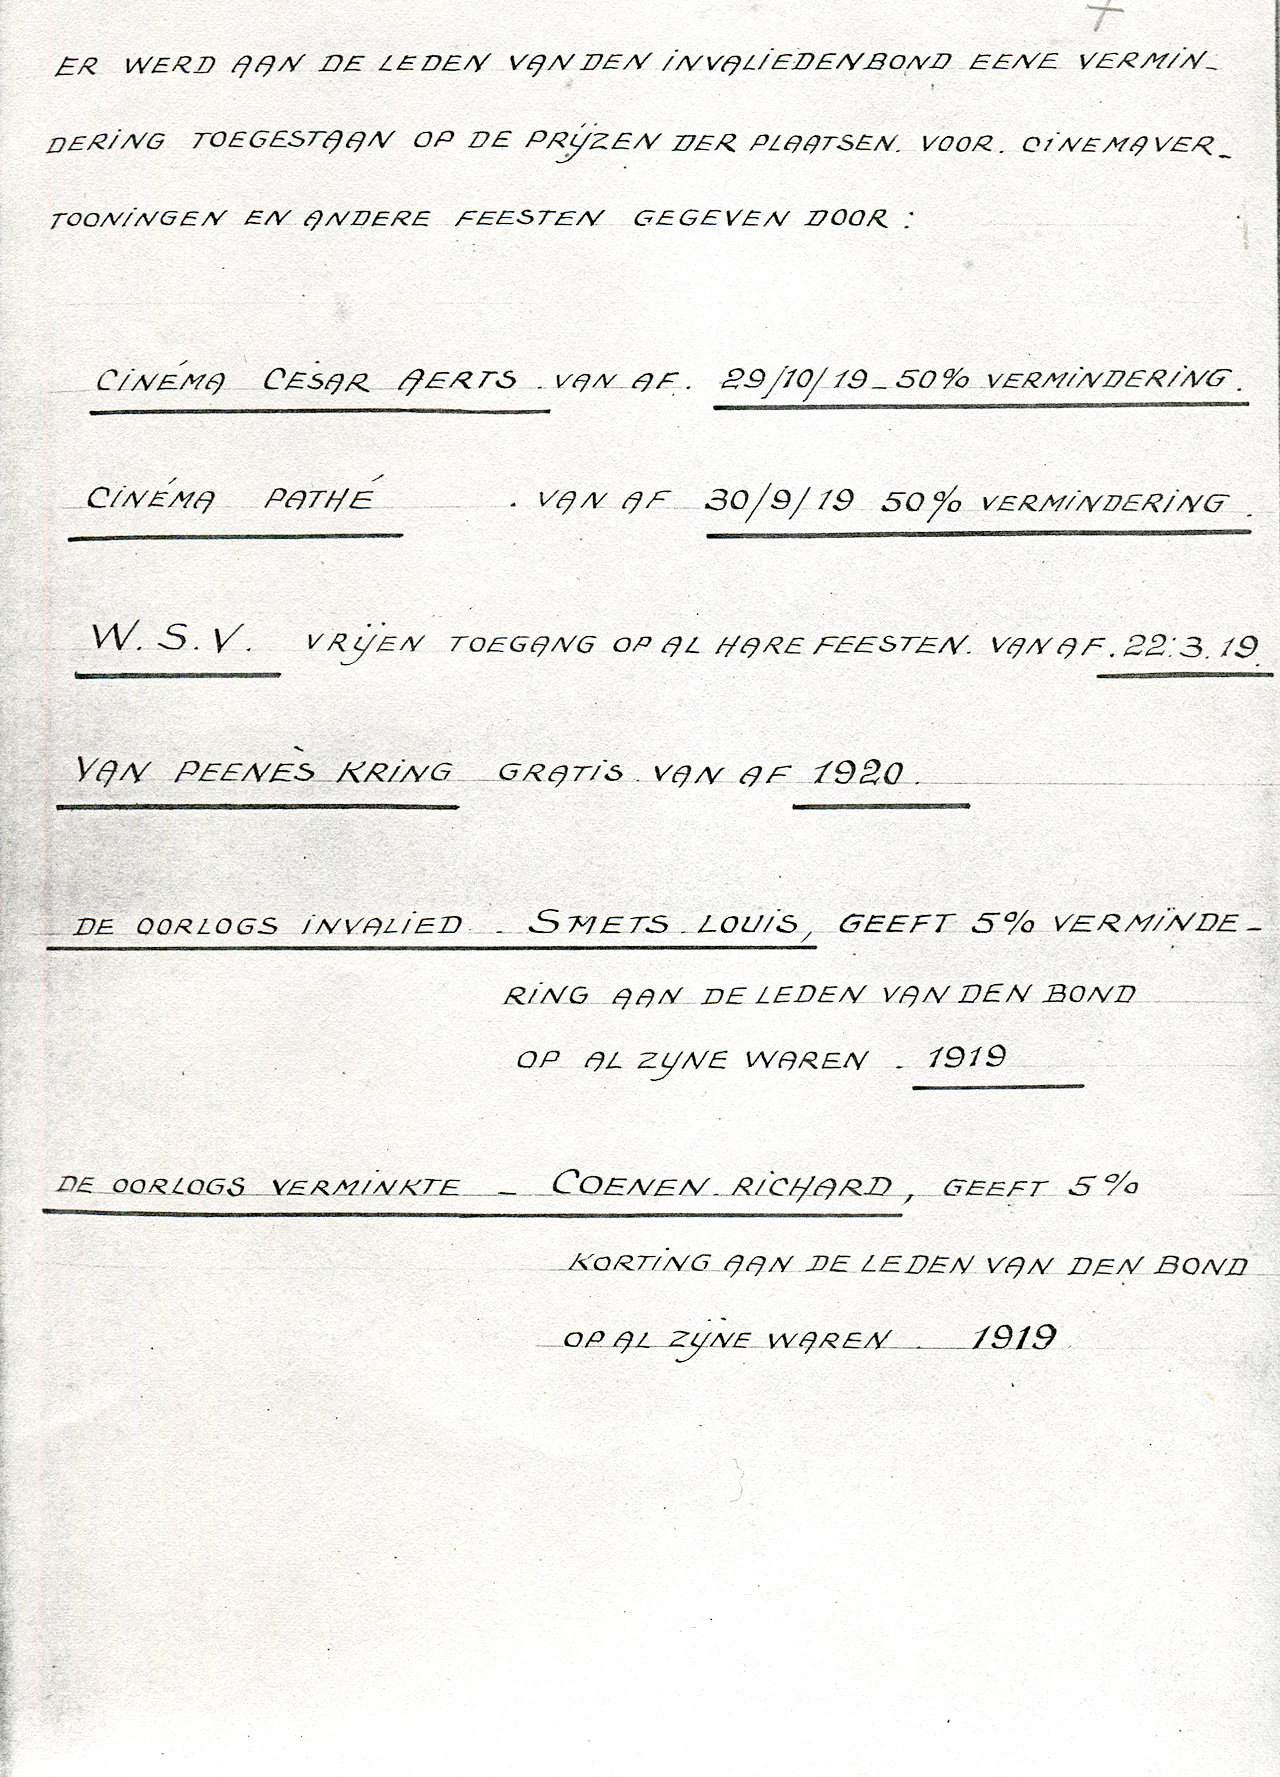 ER WERD AAN DE LEDEN VAN DEN INVALIEDENBOND EENE VERMIN-
DERING TOEGESTAAN OP DE PRIJZEN DER PLAATSEN. VOOR. CINEMAVER-
TOONINGEN EN ANDERE FEESTEN GEGEVEN DOOR :
CINÉMA CÉSAR AERTS . VAN AF. 29/10/19 - 50% VERMINDERING.
CINÉMA PATHÉ . VAN AF 30/9/19 50% VERMINDERING.
W.S.V. VRIJEN TOEGANG OP AL HARE FEESTEN. VAN AF. 22.3.19.
VAN PEENE'S KRING GRATIS VAN AF 1920.
DE OORLOGS INVALIED - SMETS LOUIS, GEEFT 5% VERMINDE-
RING AAN DE LEDEN VAN DEN BOND
OP AL ZYNE WAREN . 1919
DE OORLOGS VERMINKTE - COENEN RICHARD, GEEFT 5%
KORTING AAN DE LEDEN VAN DEN BOND
OP AL ZIJNE WAREN . 1919